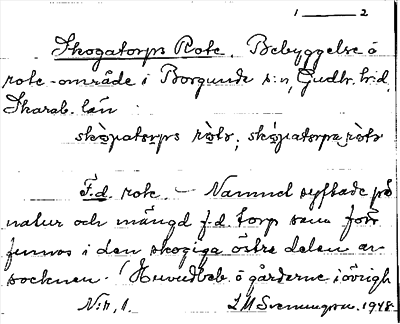 1 — 2
Skogatorps Rote. Bebyggelse o
rote-område i Borgunda s:n, Gudh. hd,
Skarab. län
skogatorps rote; skogatorpa rote
F.d. rote. — Namnet syftade på
natur och mängd f.d. torp som förr
funnos i den skogiga östra delen av
socknen. (Huvudbeb. o gårderne i övrigt
N:r, 1. Svenungson. 1948